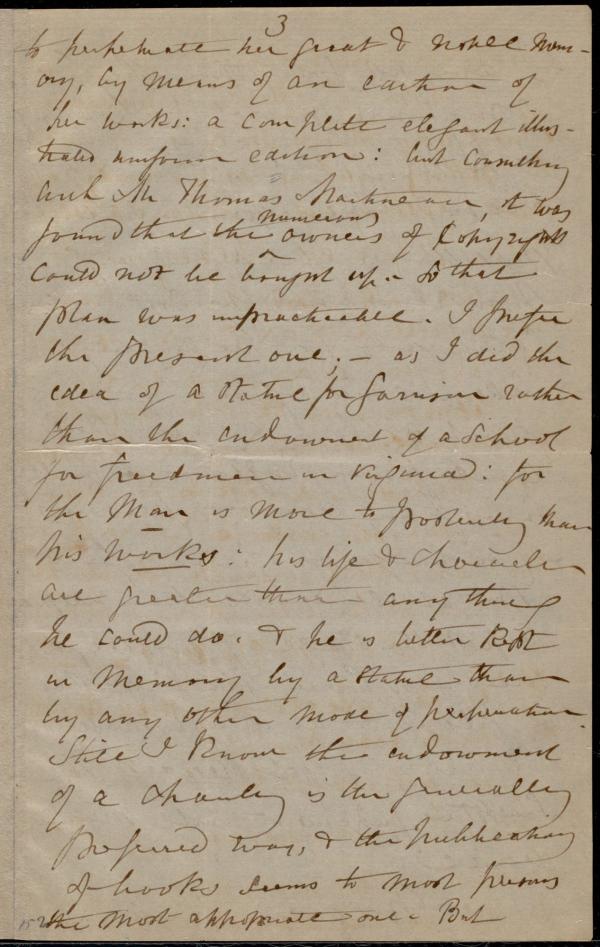 3
to perpetuate her great & noble Mem-
ory, by means of an edition of
her works: a complete elegant illus-
trated uniform edition: but consulting
with Mr Thomas Martineau, it was
numerous
found that the ^ owners of Copyrights
could not be bought up. So that
plan was impracticable. I prefer
the present one; - as I did the
idea of a statue for Garrison rather
than the endowment of a School
for freedmen in Virginia: for
the Man is more to posterity than
his works: his life & character
are greater than anything
he could do. & he is better kept
in memory by a statue than
by any other mode of perpetuation.
Still I know the endowment
of a charity is the generally
preferred way, & the publication
of books seems to most persons
the most appropriate one. But